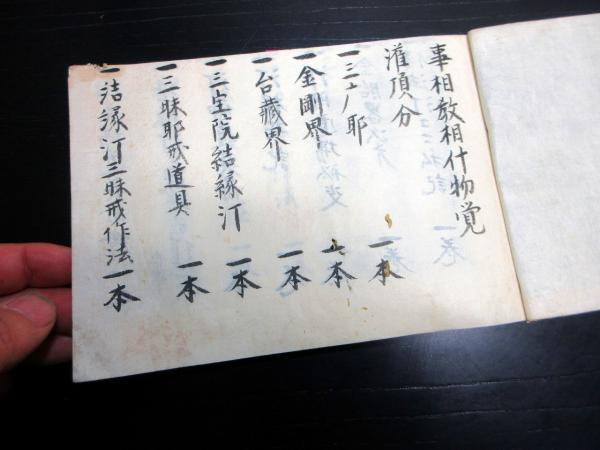 事相教相什物覚
灌頂分
一三ノ耶 一本
一金剛界 一本
一台蔵界 一本
一三宝院結縁汀 一本
一三昧耶戒道具 一本
一結縁汀三昧戒作法 一本